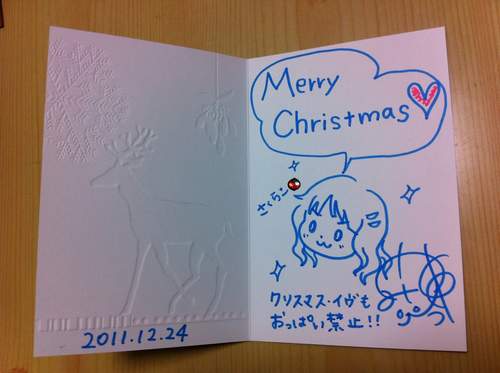 Merry
Christmas
さくらこ
クリスマス・イヴも
おっぱい禁止!!
2011.12.24